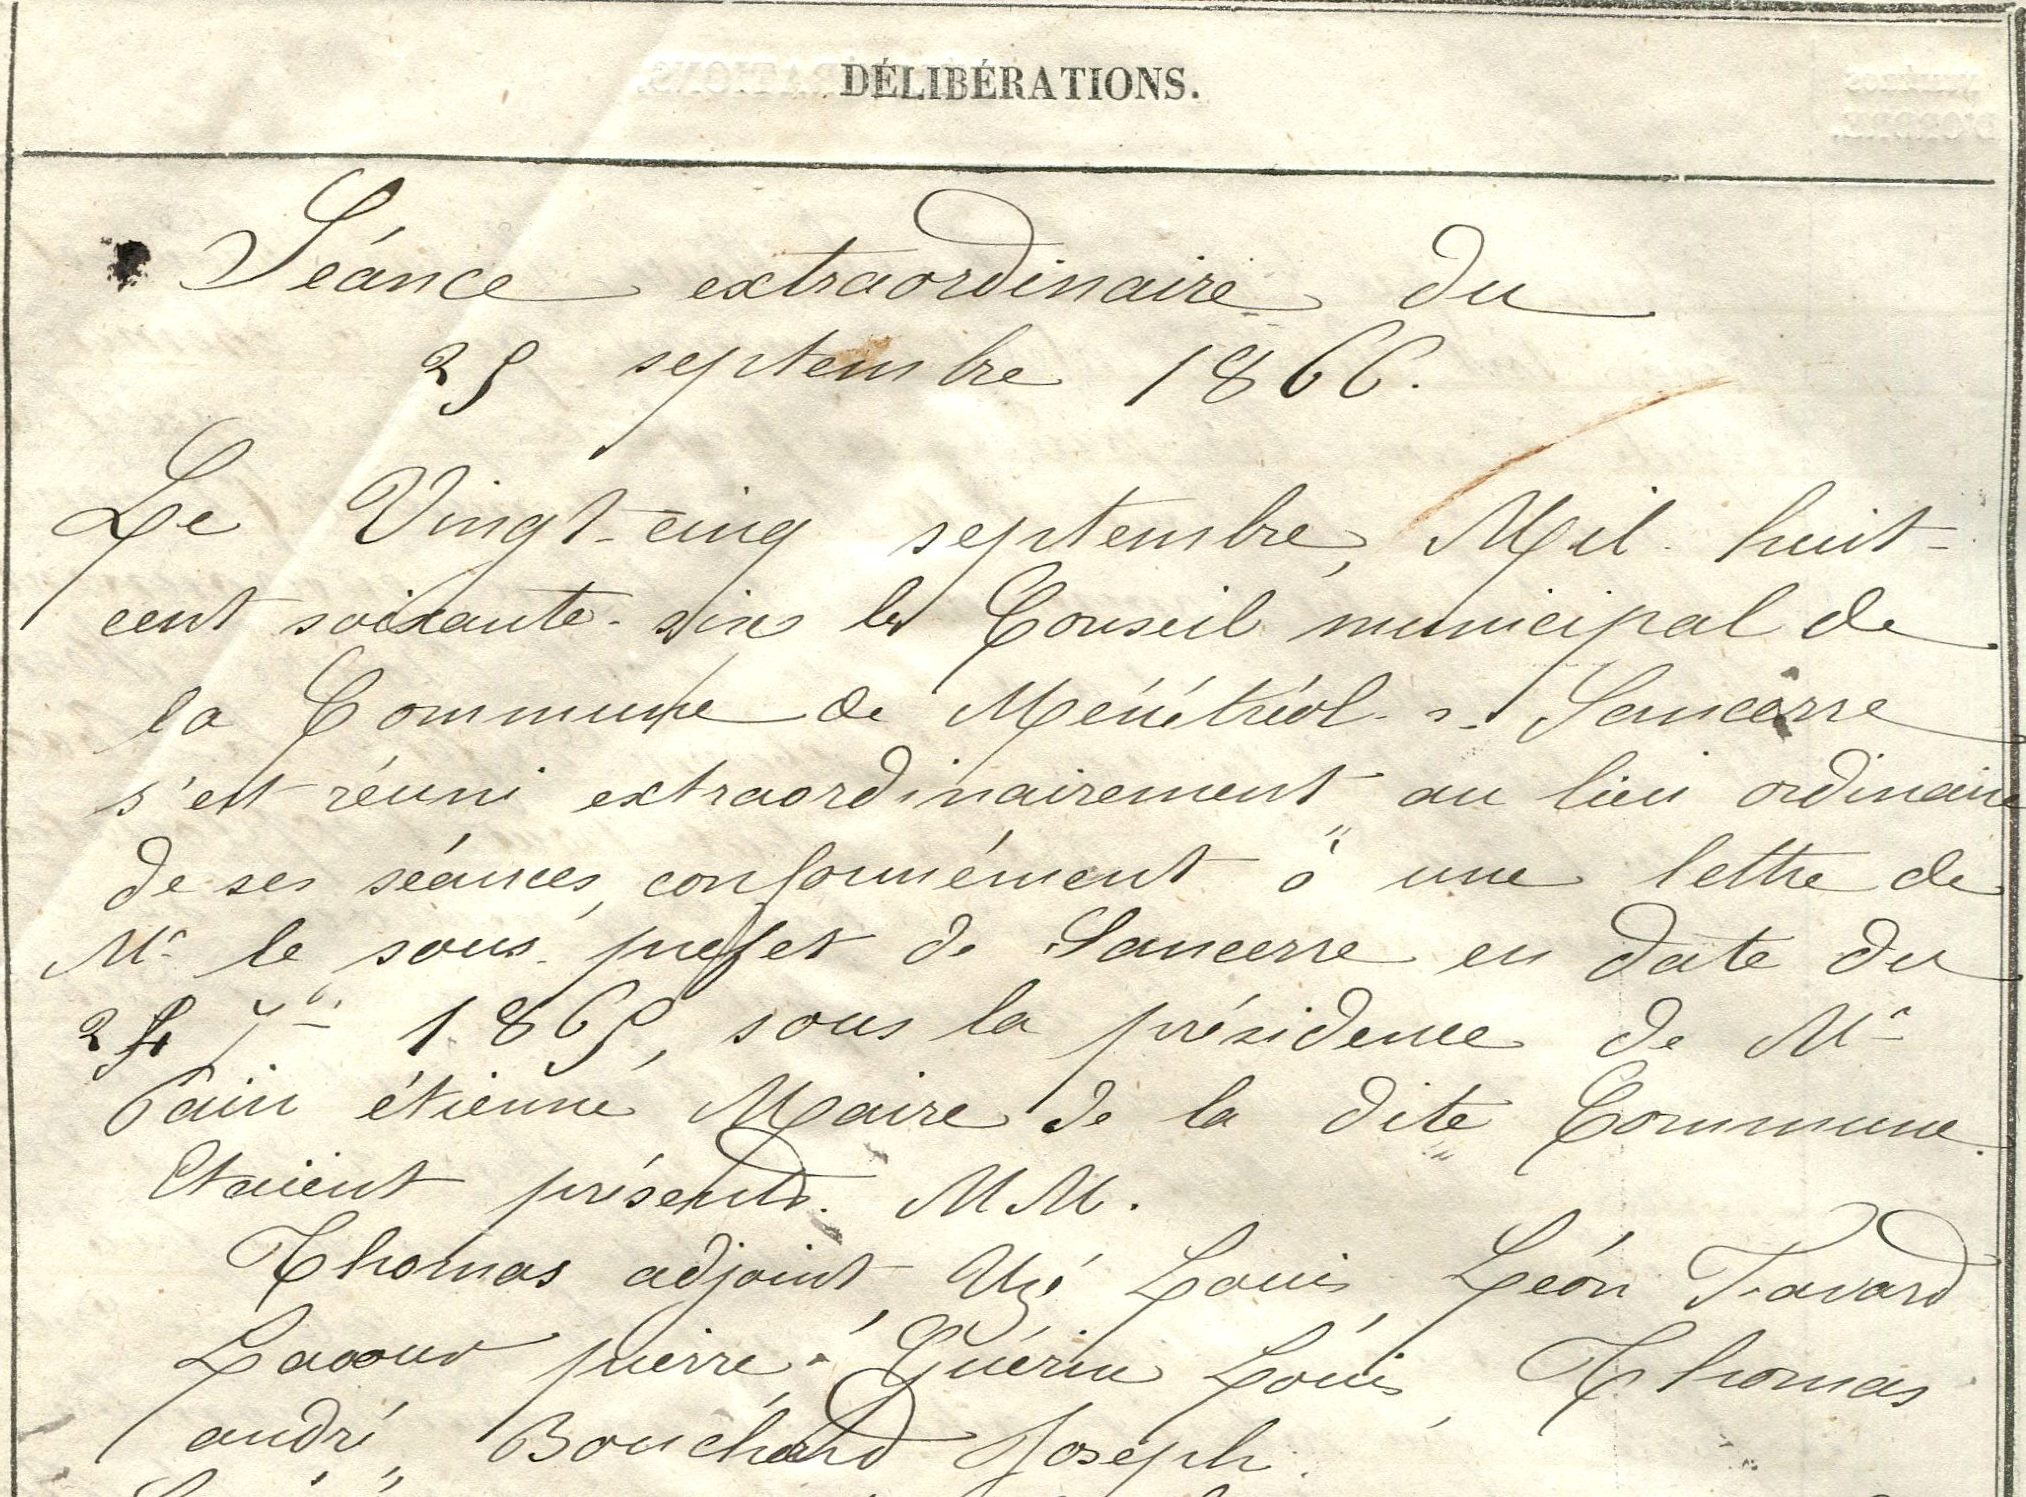 DÉLIBÉRATIONS.
Séance extraordinaire du
25 septembre 1866.
Le Vingt-cinq septembre, Mil huit-
cent soixante-six le Conseil municipal de
la Commune de Ménétréol-s-Sancerre
s'est réuni extraordinairement au lieu ordinaire
de ses séances, conformément à une lettre de
Mr le sous-préfet de Sancerre en date du
24 7bre 1865, sous la présidence de Mr
Pain étienne Maire de la dite Commune.
Etaient présents. MM.
Thomas adjoint, Uzé Louis, Léon Favard
pierre, Guérin Louis, Thomas
andré, Bouchard Joseph.